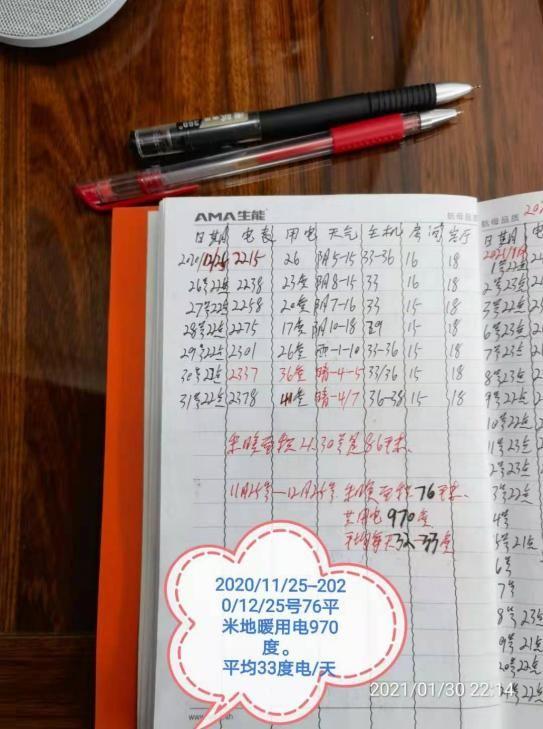 AMA生能
航母品质
日期 电表 用电 天气 主机 房间 客厅
2020/12/25 2215 26 阴5-15 33-36 16 18
26号22点 2238 23度 阴8-15 33 16 18
27号22点 2258 20度 阴7-16 33 15 18
28号22点 2275 17度 阴10-18 29 15 18
29号22点 2301 26度 雨-1-10 33-36 15 18
30号22点 2337 36度 晴-4-5 33/36 15 18
31号22点 2378 41度 晴-4/7 36-38 15 18
采暖面积 30号是86平米、
11月25号-12月25号 采暖面积76平米.
共用电970度
平均每天32-33度
航母品质
日期
1号22点
2号23点
3号22点
6号23点
7号23点
8号23点
9号22点
10号22点
11号23点
2号23点
3号22点
4号
5号21点
6号
7号
8号23点
9号21点
20号22点
2020/11/25–202
0/12/25号76平
米地暖用电970
度。
平均33度电/天
2021/01/30 22:14